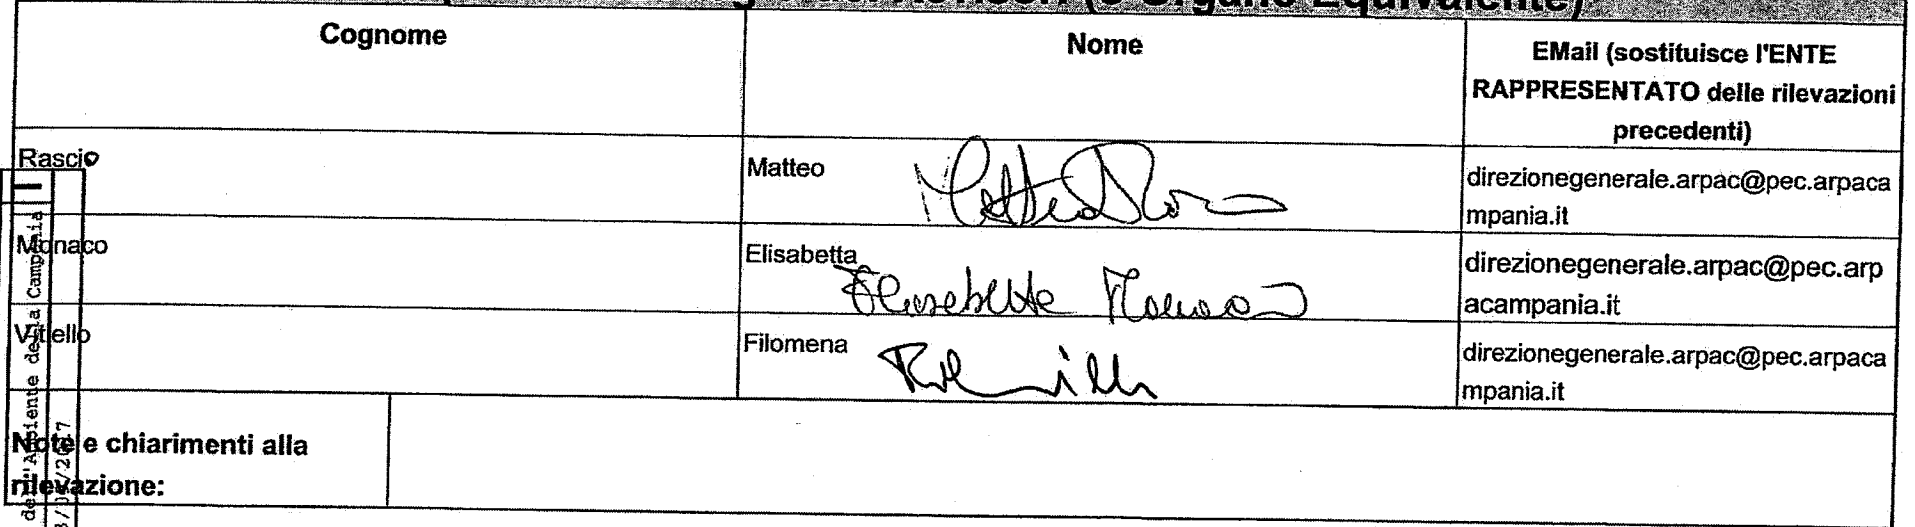 (o Organo Equivalente)
Cognome
Nome
EMail (sostituisce l'ENTE
RAPPRESENTATO delle rilevazioni
precedenti)
Rascio
Matteo
direzionegenerale.arpac@pec.arpaca
mpania.it
Monaco
Elisabetta
Elisabetta Monaco
direzionegenerale.arpac@pec.arp
acampania.it
Vitiello
Filomena
direzionegenerale.arpac@pec.arpaca
mpania.it
Note e chiarimenti alla
rilevazione:
dell'Ambiente della Campania